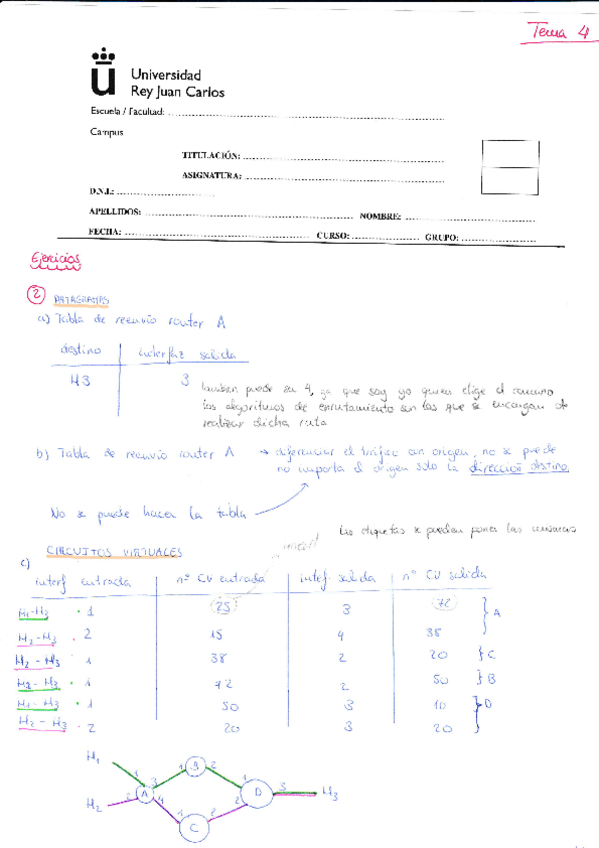 Tema 4
Universidad
Rey Juan Carlos
Escuela / Facultad:
Campus
TITULACIÓN:
ASIGNATURA:
D.N.I.:
APELLIDOS: NOMBRE:
FECHA: CURSO: GRUPO:
Ejercicios
2 DATAGRAMAS
a) Tabla de reenvío router A
destino interfaz salida
H3 3
también puede ser 4, ya que soy yo quien elige el camino
los algoritmos de enrutamiento son los que se encargan de
realizar dicha ruta
b) Tabla de reenvío router A → diferenciar el tráfico con origen, no se puede
no importa el origen solo la dirección destino.
No se puede hacer la tabla
las etiquetas se pueden poner las
CIRCUITOS VIRTUALES
c)
interf entrada nº CV entrada interf salida nº CV salida
H1-H3 · 1 25 3 72 A
H2-H3 · 2 15 4 38
H2-H3 1 38 2 20 } C
H1-H3 · 1 72 2 50 } B
H1-H3 · 1 50 3 10 } D
H2-H3 · 2 20 3 20
H1
1 3 1 B 2 1
A D 3 H3
H2 2 4 1 2 2
C